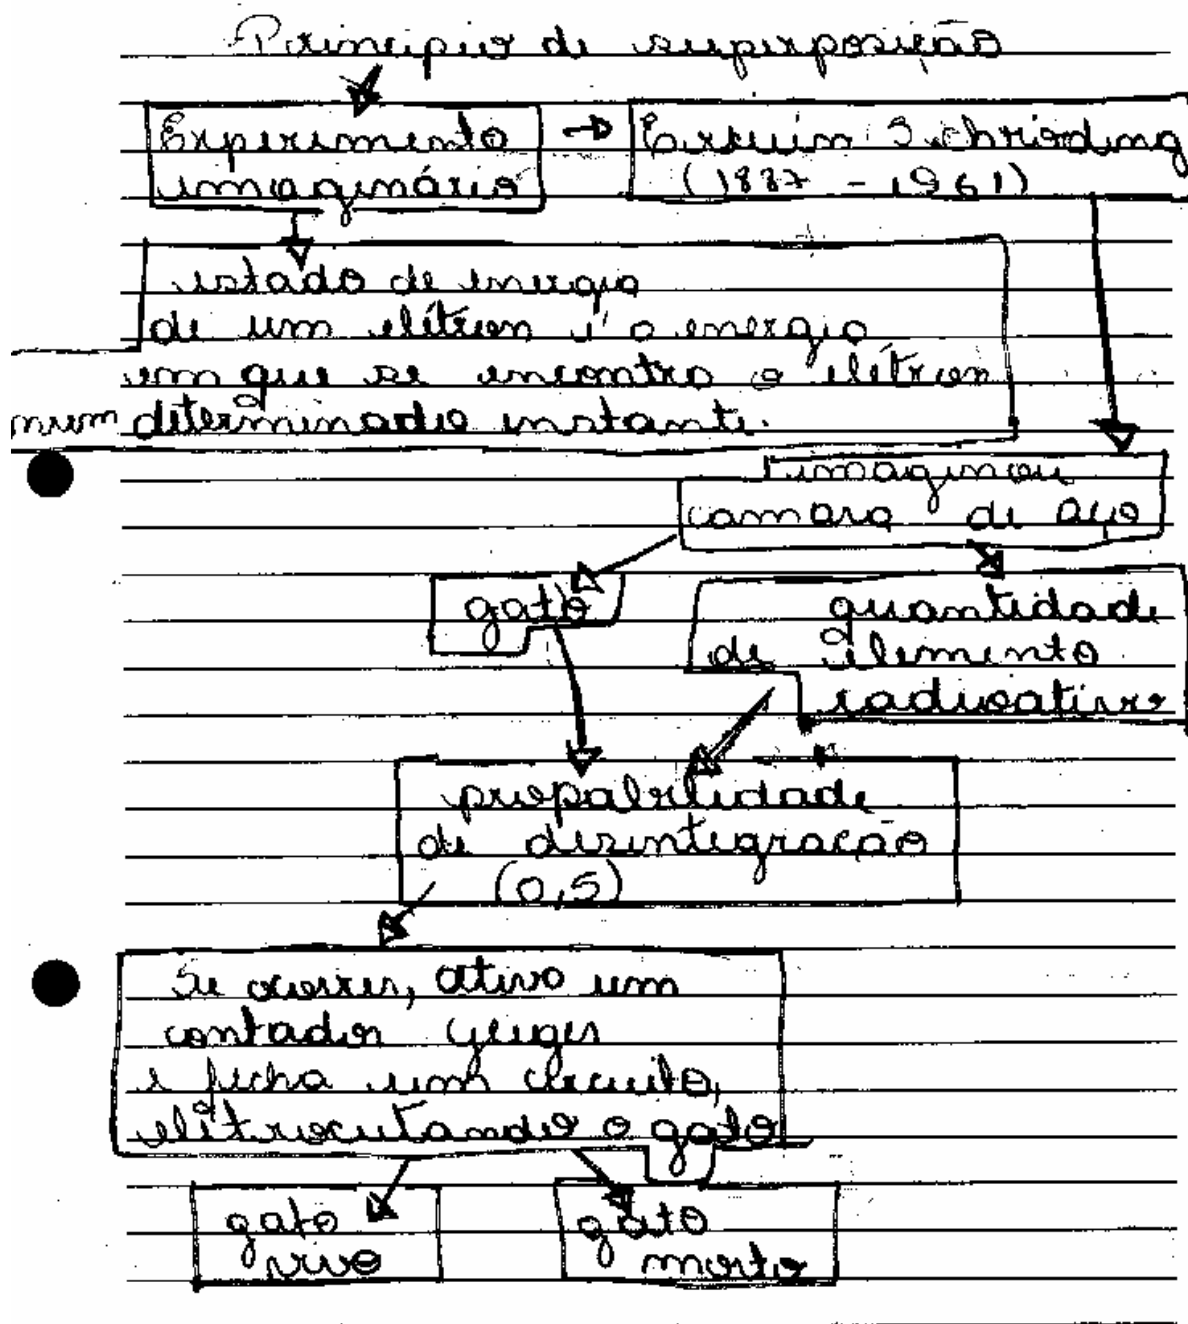 Princípio de superposição
Experimento
imaginário
Erwin Schrirding
(1887 - 1961)
estado de energia
de um elétron é a energia
em que se encontra o elétron
num determinado instante.
imaginou
camara de aço
gato
quantidade
de elemento
radioativo
propabilidade
de desintegração
(0,5)
Se ocorrer, ativa um
contador geiger
e fecha um circuito,
eletrocutando o gato
gato
vivo
gato
morto